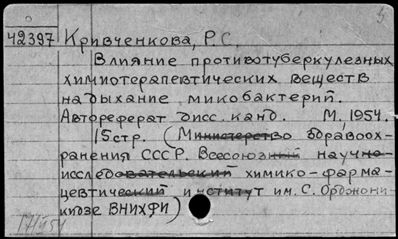 5
42397 Кривченкова, Р. С.
Влияние противотуберкулезных
химиотерапевтических веществ
на дыхание микобактерий.
Автореферат дисс. канд. М., 1954.
15 стр. (Министерство здравоох-
ранения СССР. Всесоюзный научно-
исследовательский химико-фарма-
цевтический институт им. С. Орджони-
кидзе ВНИХФИ)